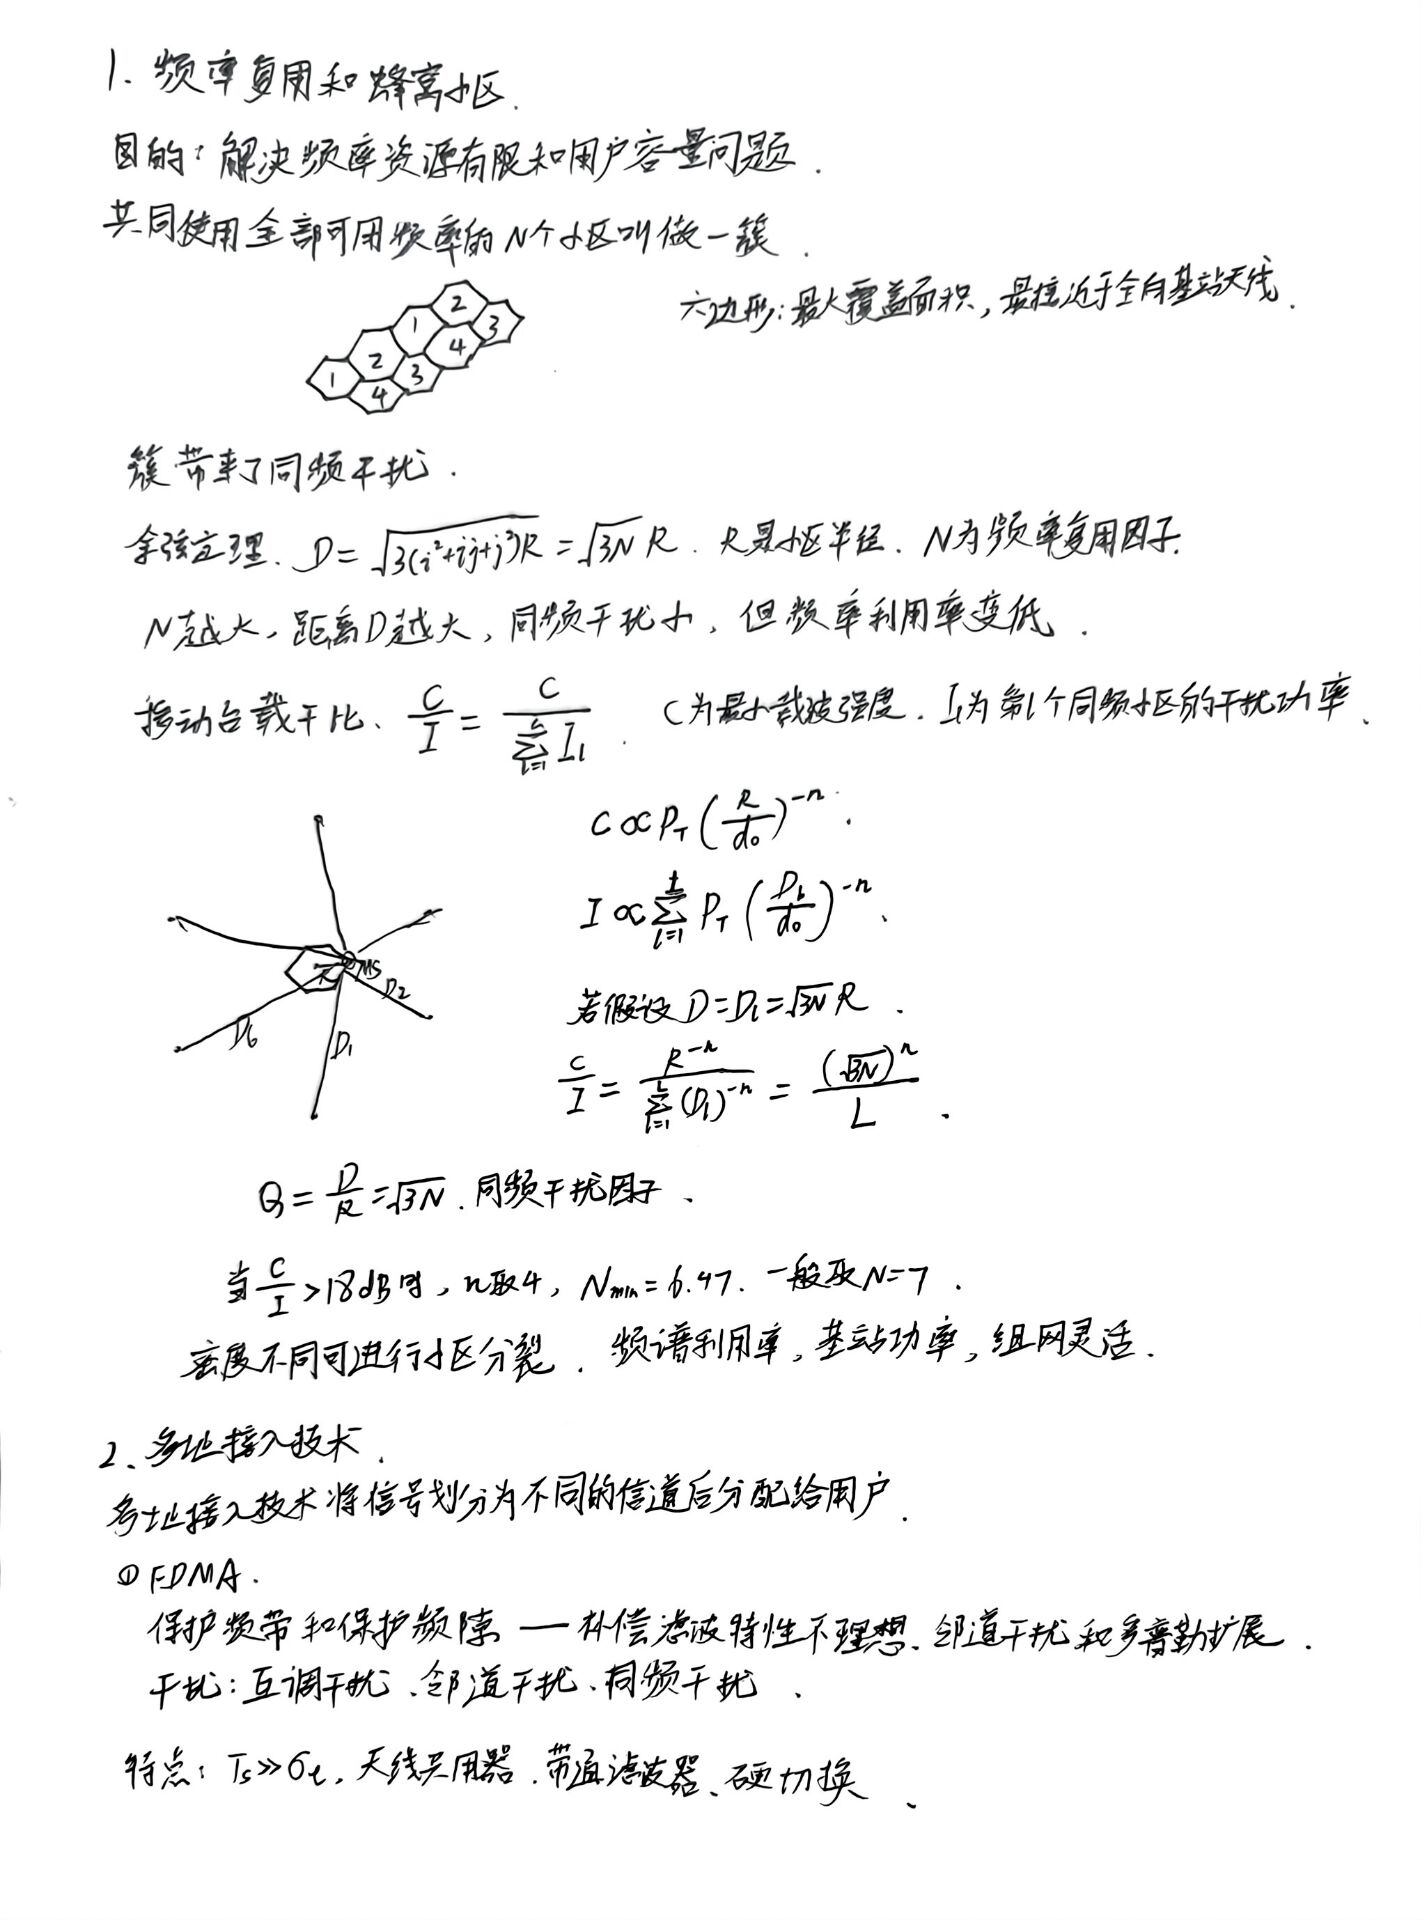 1、频率复用和蜂窝小区.
目的：解决频率资源有限和用户容量问题.
共同使用全部可用频率的N个小区叫做一簇.
六边形：最大覆盖面积，最接近于全向基站天线.
2
1 3
2 4
1 3
4
簇带来了同频干扰.
余弦定理、D=√3(i²+ij+j²)R=√3N R. R是小区半径. N为频率复用因子.
N越大，距离D越大，同频干扰小，但频率利用率变低.
移动台载干比、C/I = C/∑_{l=1}^{L} I_l. C为最小载波强度. I_l为第l个同频小区的干扰功率、
C∝P_T(R/d₀)^{-n}.
I∝∑_{l=1}^{L} P_T(D_l/d₀)^{-n}、
R MS
D₂
D₆ D₁
若假设D=D_l=√3N R.
C/I = R^{-n}/∑_{l=1}^{L}(D_l)^{-n} = (√3N)^n/L.
Q=D/R=√3N. 同频干扰因子、
当C/I>18dB时，n取4，N_min=6.47. 一般取N=7.
密度不同可进行小区分裂. 频谱利用率，基站功率，组网灵活.
2、多址接入技术.
多址接入技术将信号划分为不同的信道后分配给用户.
① FDMA.
保护频带和保护频隙——补偿滤波特性不理想、邻道干扰和多普勒扩展.
干扰：互调干扰、邻道干扰、同频干扰、
特点：Ts≫σ_t，天线共用器、带通滤波器、硬切换、